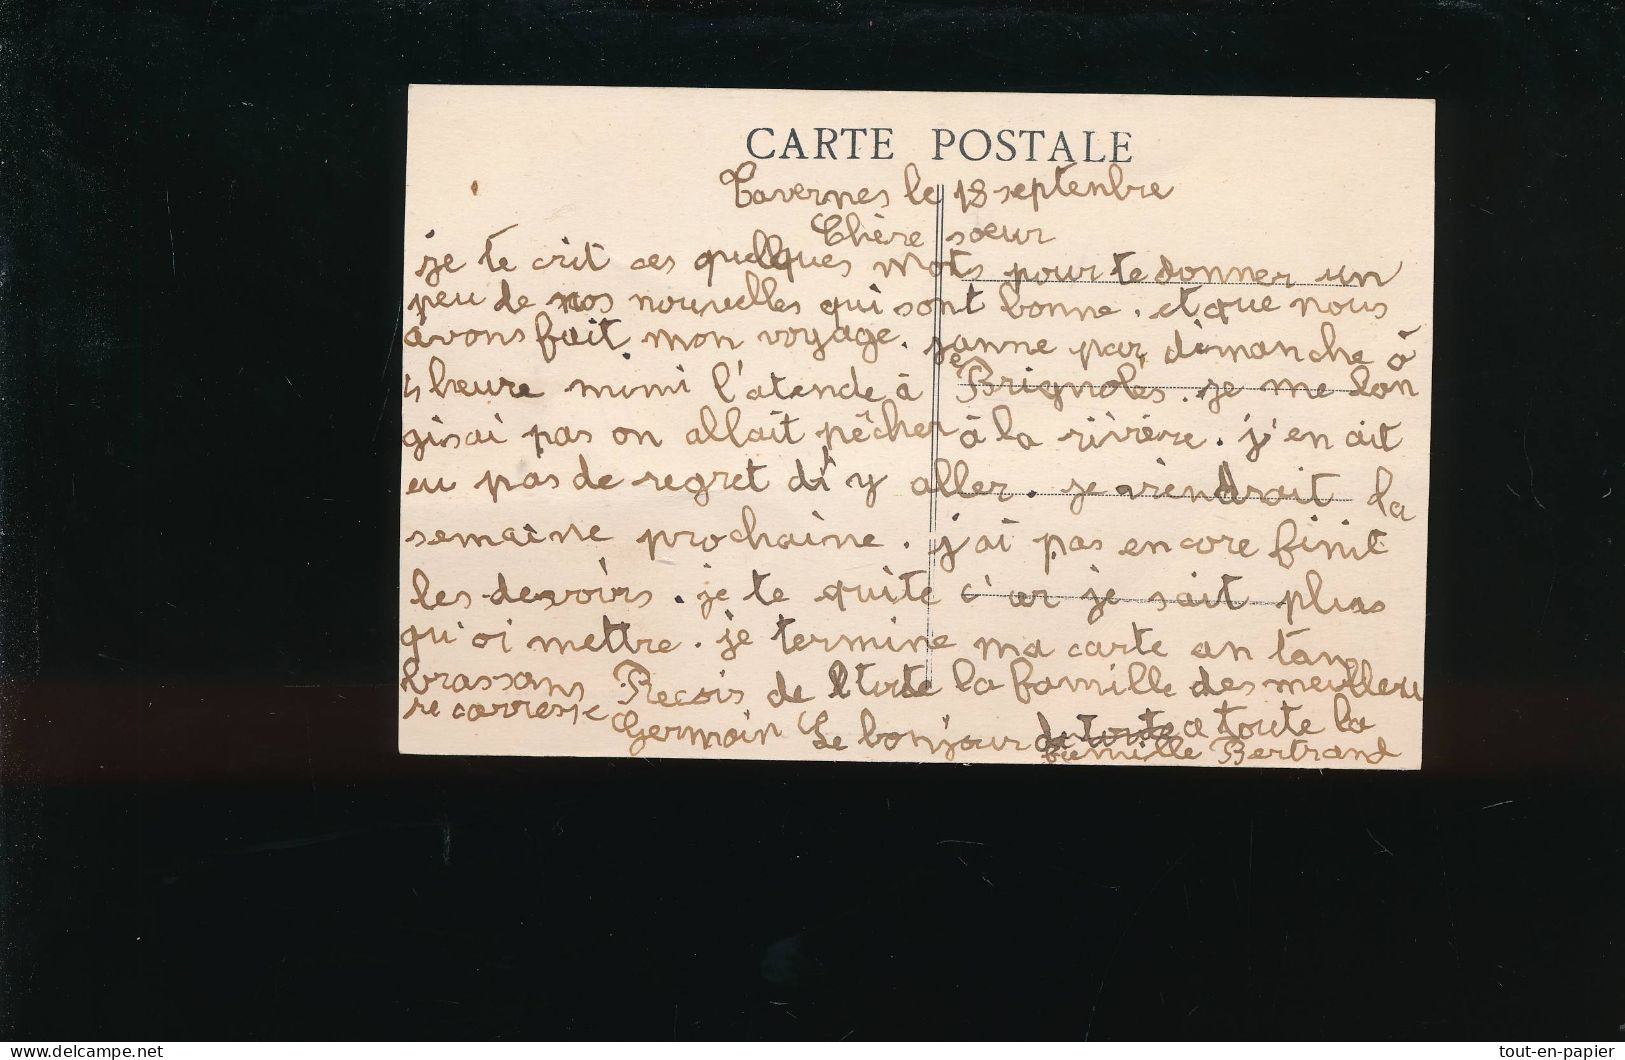 CARTE POSTALE
Tavernes le 18 septenbre
Chère sœur
je te crit ces quelques mots pour te donner un
peu de nos nouvelles qui sont bonne. et que nous
avons fait mon voyage. janne par dimanche à
4 heure mimi l'atende à Brignoles. je me lon
gisai pas on allait pêcher à la rivière. j'en ait
eu pas de regret di y aller. je viendrait la
semaine prochaine. j'ai pas encore finit
les devoirs. je te quite c'ar je sait plus
qu'oi mettre. je termine ma carte an tan
brassans Recois de toute la famille des meillere
re carresse Germain Le bonjour de toute a toute la
famille Bertrand
www.delcampe.net
tout-en-papier